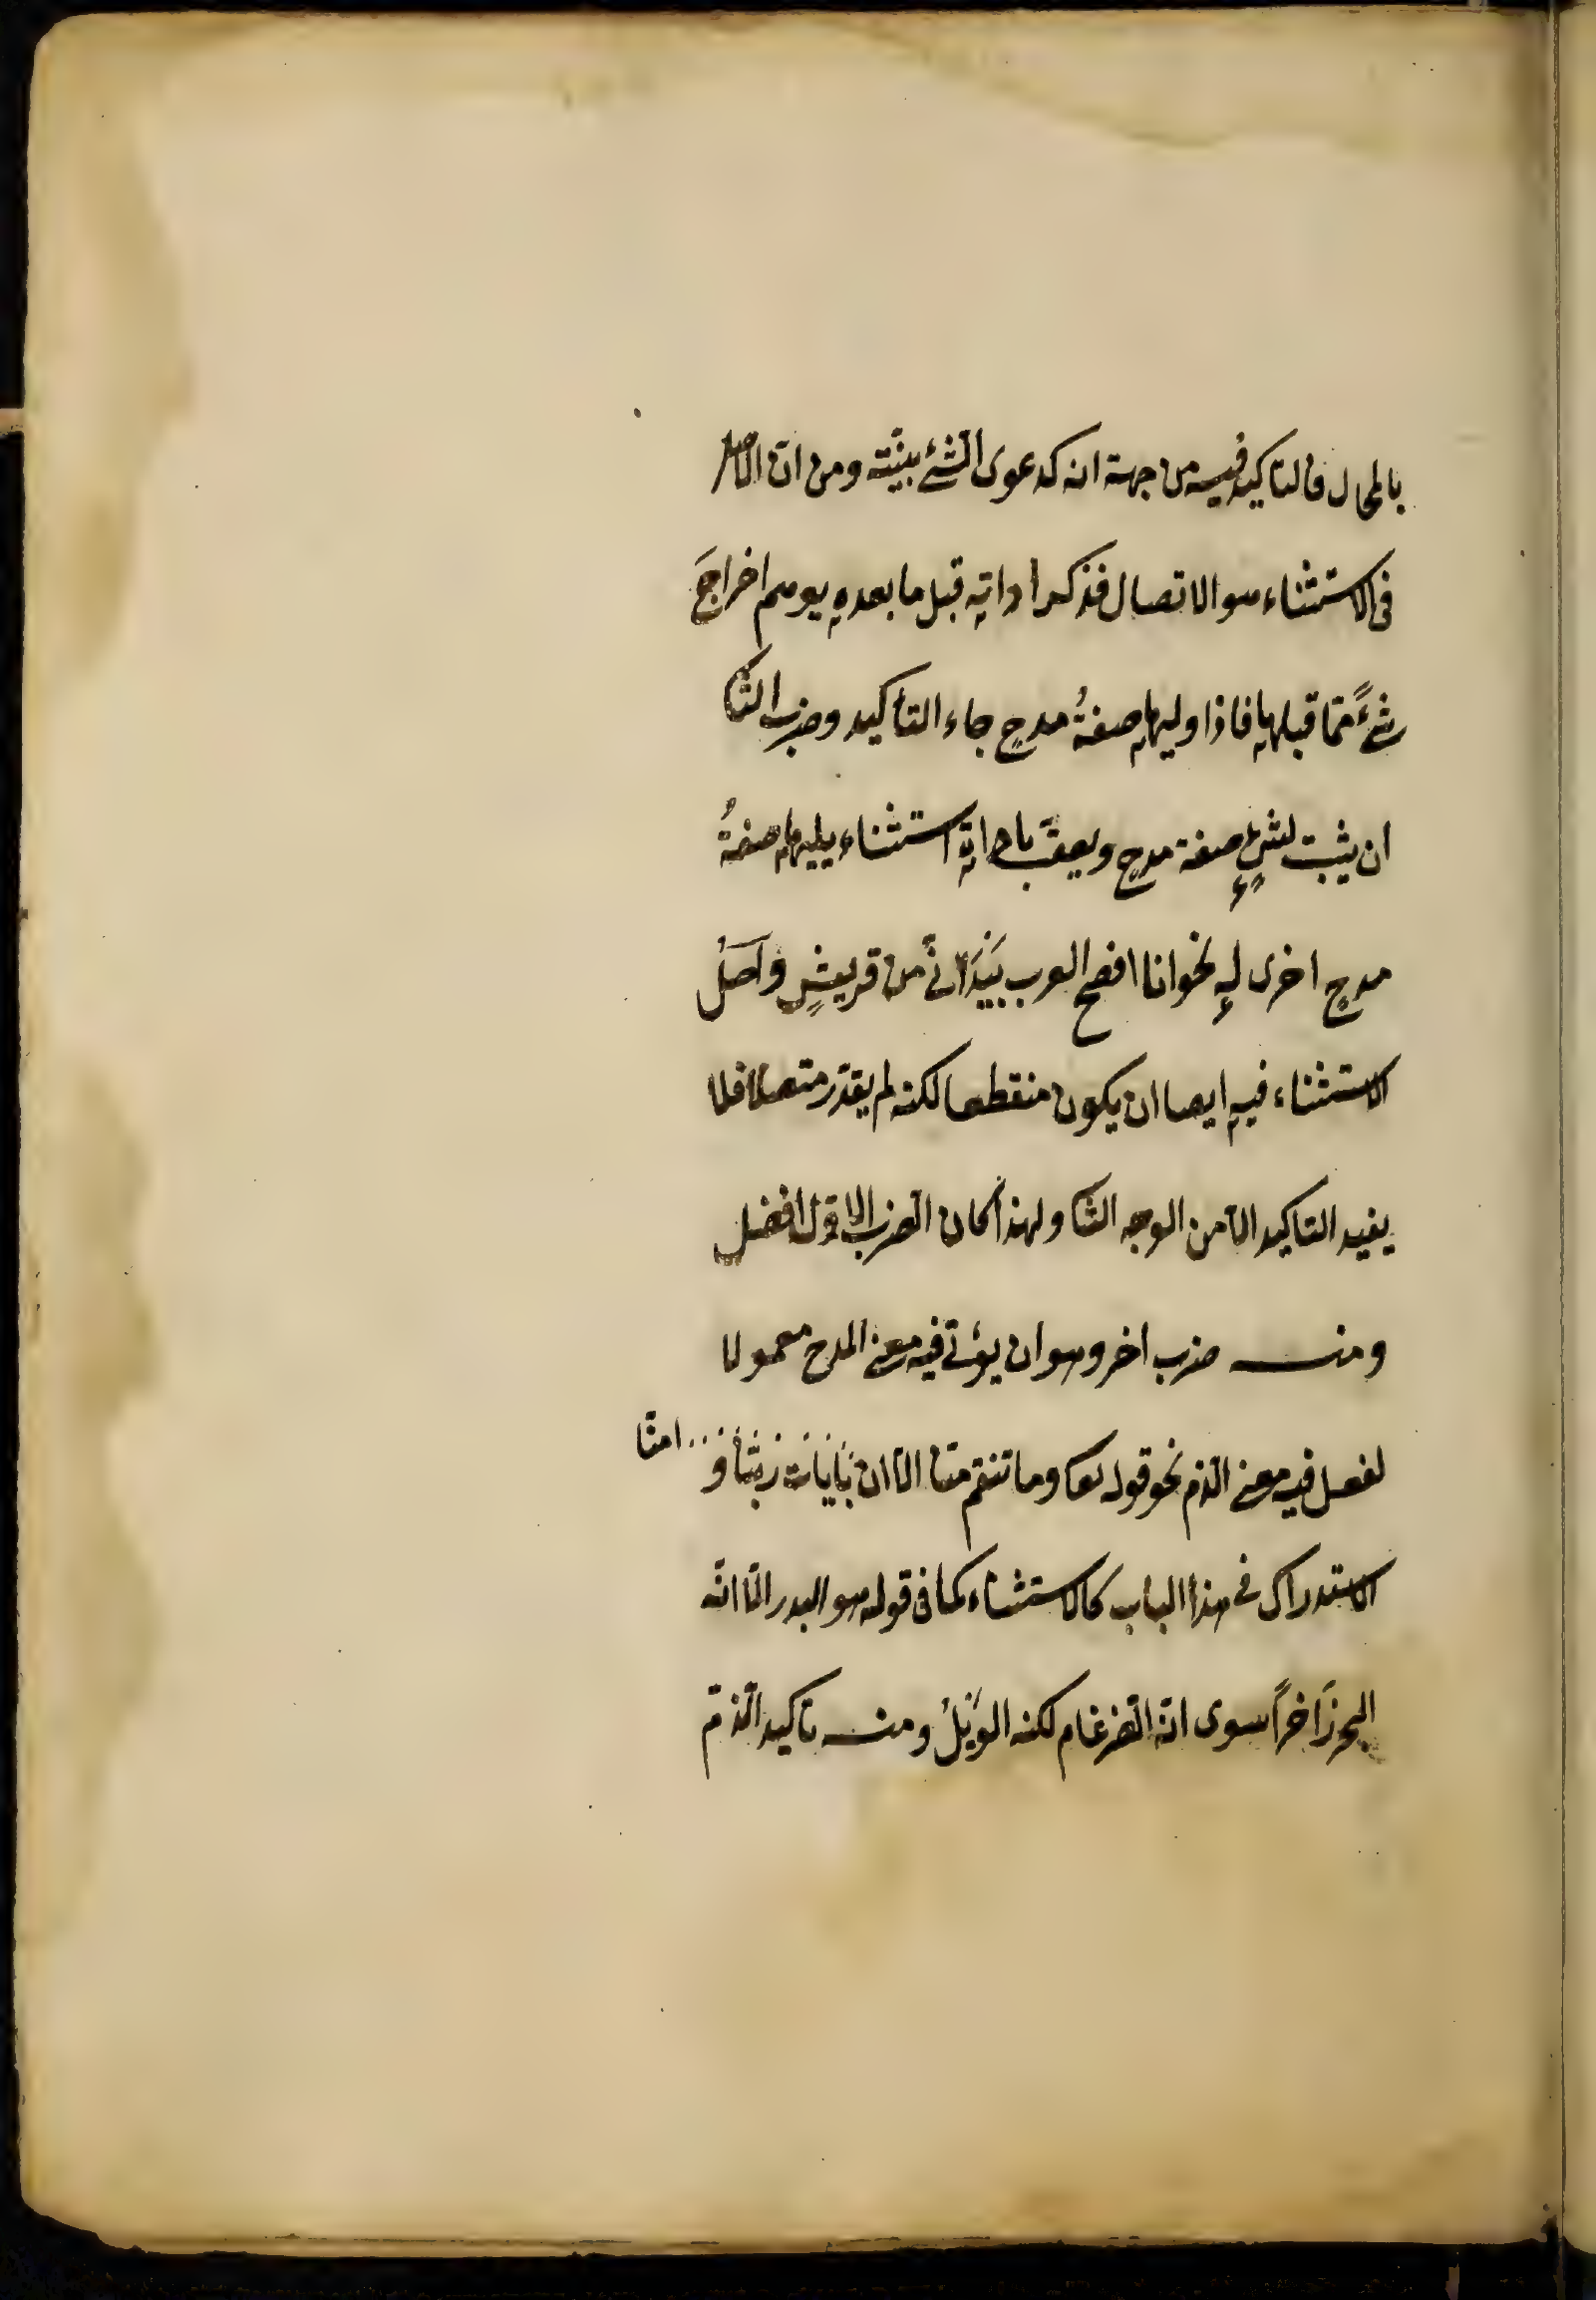 بالمحال فالتاكيد فيه من جهة انه كدعوى الشئ ببيّنة ومن انّ الاصل
فى الاستثناء هو الاتصال فذكر اداته قبل ما بعده يوهم اخراجَ
شئٍ ممّا قبلها فاذا وليها صفةُ مدحٍ جاء التأكيد وضرب الثا
ان يثبت لشئٍ صفة مدح ويعقّب باداة استثناء يليها صفةُ
مدحٍ اخرى له نحو انا افصح العرب بَيْدَ انّى من قريشٍ واَصلُ
الاستثناء فيه ايضا ان يكون منقطعا لكنه لم يقدّر متصلا فلا
يفيد التاكيد الّا من الوجه الثا ولهذا كان الضرب الاوّل افضل
ومنه ضرب اخر وهو ان يؤتى فيه معنى المدح معمولا
لفعل فيه معنى الذم نحو قوله تعا وما تنقم منّا الّا ان بايات ربنا و امنّا
الاستدراك فى هذا الباب كالاستثناء كما فى قوله هو البدر الّا انّه
البحر زاخراً سوى انّه الضرغام لكنه الوَبْلُ ومنه تاكيد الذمّ